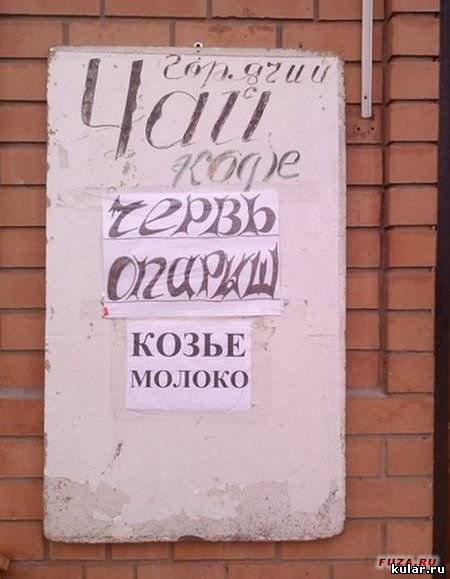 горячий
Чай
кофе
червь
опарыш
КОЗЬЕ
МОЛОКО
FUZA.RU
kular.ru